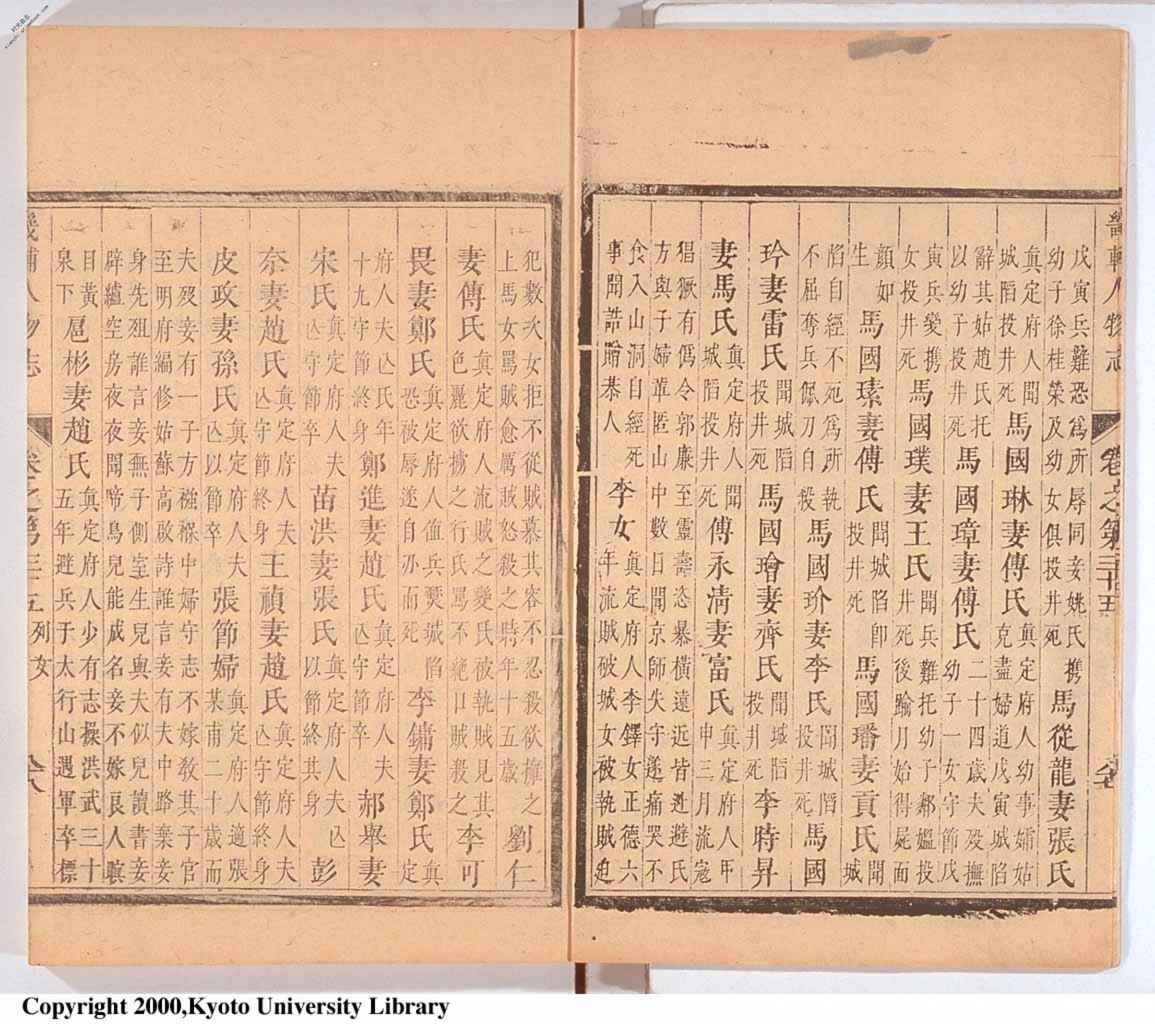 畿輔人物志 卷之第三十五
戊寅兵難恐為所辱同妾姚氏攜
幼子徐桂榮及幼女俱投井死
馬從龍妻張氏
真定府人聞
城陷投井死
馬國琳妻傅氏
真定府人幼事孀姑
克盡婦道戊寅城陷
辭其姑趙氏托
以幼子投井死
馬國璋妻傅氏
二十四歲夫歿撫
幼子一女守節戊
寅兵變攜
女投井死
馬國璞妻王氏
聞兵難托幼子鄰嫗投
井死後踰月始得屍面
顏如
生
馬國瑧妻傅氏
聞城陷即
投井死
馬國璠妻貢氏
聞
城
陷自經不死為所執
不屈奪兵傷刀自殺
馬國玠妻李氏
聞城陷
投井死
馬國
玲妻雷氏
聞城陷
投井死
馬國璿妻齊氏
聞城陷
投井死
李時昇
妻馬氏
真定府人聞
城陷投井死
傅永清妻富氏
真定府人甲
申三月流寇
猖獗有偽令郭廉至靈壽恣暴橫遠近皆逃避氏
方與子婦輩匿山中數日聞京師失守遂痛哭不
食入山洞自經死
事聞誥贈恭人
李女
真定府人李鐸女正德六
年流賊破城女被執賊迫
犯數次女拒不從賊慕其容不忍殺欲擁之
上馬女罵賊愈厲賊怒殺之時年十五歲
劉仁
妻傅氏
真定府人流賊之變氏被執賊見其
色麗欲擄之行氏罵不絕口賊殺之
李可
畏妻鄭氏
真定府人值兵燹城陷
恐被辱遂自刎而死
李鏞妻鄭氏
真
定
府人夫亾氏年
十九守節終身
鄭進妻趙氏
真定府人夫
亾守節卒
郝舉妻
宋氏
真定府人夫
亾守節卒
苗洪妻張氏
真定府人夫亾
以節終其身
彭
奈妻趙氏
真定府人夫
亾守節終身
王禎妻趙氏
真定府人夫
亾守節終身
皮政妻孫氏
真定府人夫
亾以節卒
張節婦
真定府人適張
某甫二十歲而
夫歿妾有一子方襁褓中婦守志不嫁教其子官
至明府編修姑蘇高啟詩誰言妾有夫中路棄妾
身先殂誰言妾無子側室生兒與夫似兒讀書妾
辟纑空房夜夜聞啼烏兒能成名妾不嫁良人瞑
目黃
泉下
扈彬妻趙氏
真定府人少有志操洪武三十
五年避兵于太行山遇軍卒標
畿輔人物志 卷之第三十五 列女